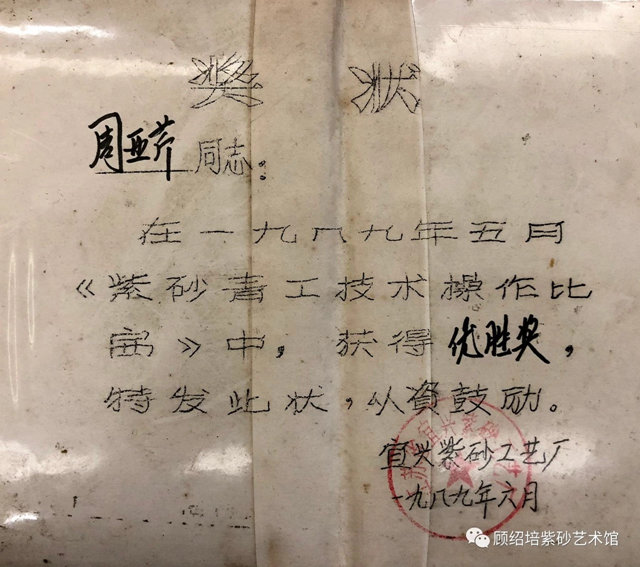 奖 状
周亚芹 同志:
在一九八九年五月
《紫砂青工技术操作比
宙》中, 获得 优胜奖,
特发此状, 以资鼓励。
宜兴紫砂工艺厂
一九八九年六月
顾绍培紫砂艺术馆